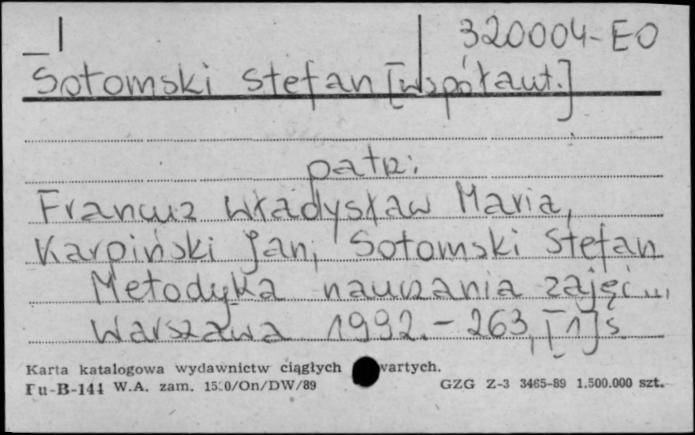 I 320004-EO
Sołomski Stefan [współaut.]
patrz:
Francuz Władysław Maria,
Karpiński Jan, Sołomski Stefan
Metodyka nauczania zajęć...
Warszawa 1992. - 263, [1] s
Karta katalogowa wydawnictw ciągłych wartych.
Pu-B-144 W.A. zam. 1520/On/DW/89 GZG Z-3 3465-89 1.500.000 szt.